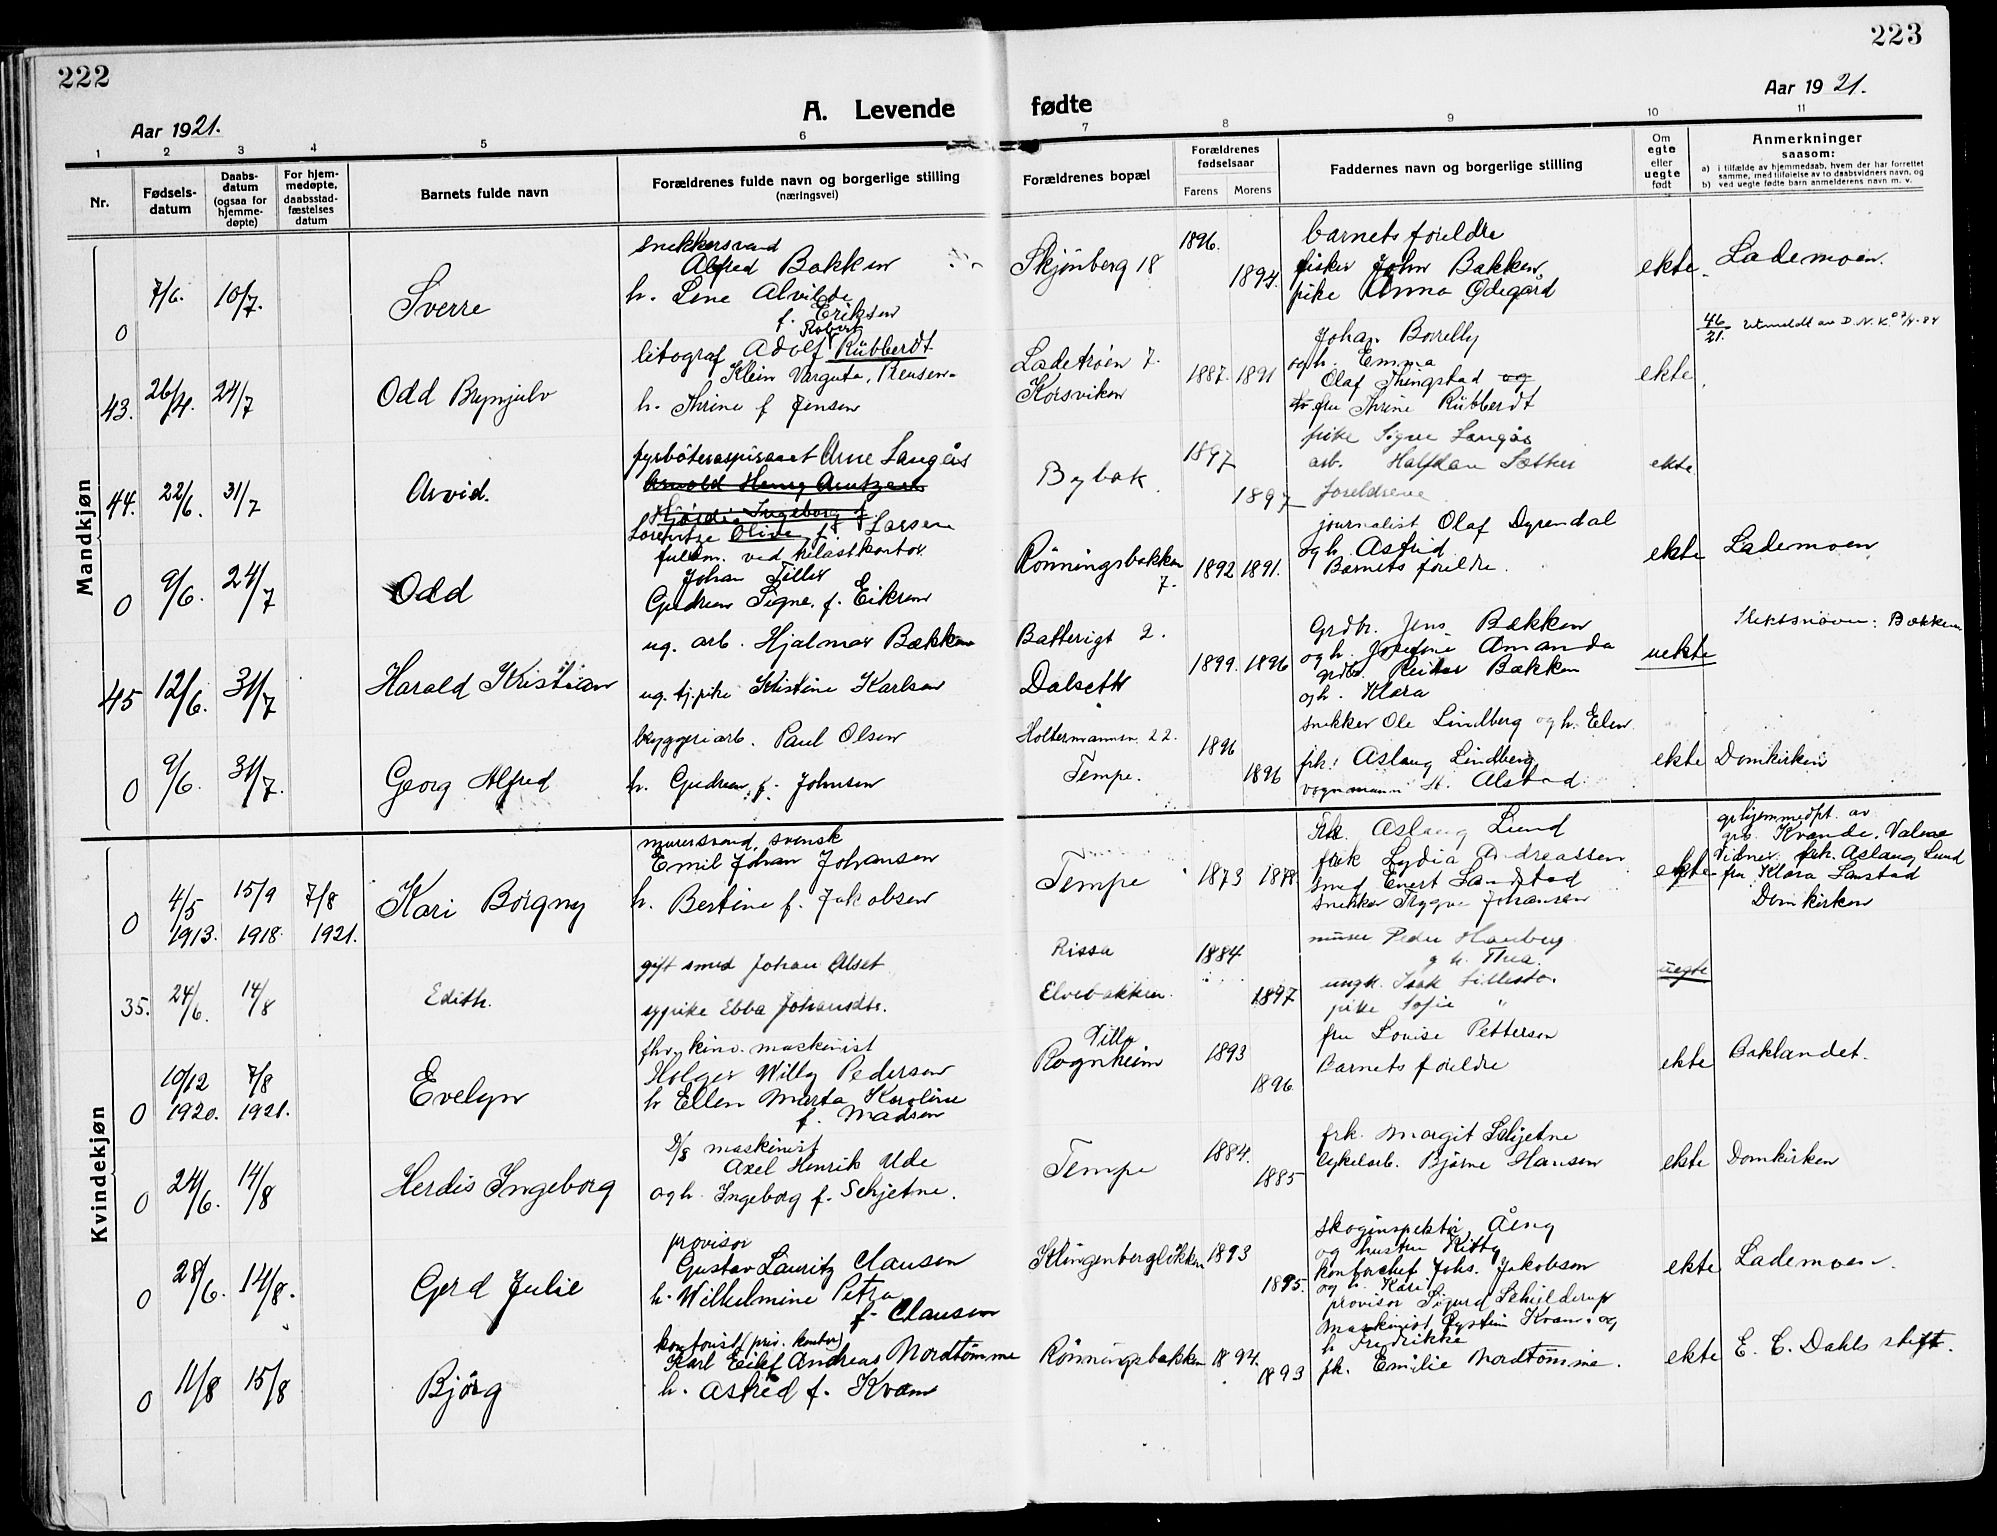 222
223
A. Levende fødte
Aar 1921.
Aar 1921.
1 2 3 4 5 6 7 8 9 10 11
Nr.
Fødsels-
datum
Daabs-
datum
(ogsaa for
hjemme-
døpte)
For hjem-
medøpte,
daabsstad-
fæstelses
datum
Barnets fulde navn
Forældrenes fulde navn og borgerlige stilling
(næringsvei)
Forældrenes bopæl
Forældrenes
fødselsaar
Farens Morens
Faddernes navn og borgerlige stilling
Om
egte
eller
uegte
født
Anmerkninger
saasom:
a) i tilfælde av hjemmedaab, hvem der har forrettet
samme, med tilføielse av to daabsvidners navn, og
b) ved uegte fødte barn anmelderens navn m. v.
Mandkjøn
0 7/6. 10/7. Sverre
snekkersvend
Alfred Bakken
h. Line Alvilde
f. Eriksen
Skjønberg 18
1896.
1894.
barnets foreldre
fisker John Bakken
pike Anna Ødegård
ekte.
Lademoen.
43. 26/4. 24/7 Odd Brynjulv
Robert
litograf Adolf Rübberdt
Klein Vargula, Preusen.
h. Thrine f Jensen
Ladetrøen 7.
Korsviken
1887. 1891
Johan Borrelly
og h. Emma
Olaf Thingstad og
fru Thrine Rübberdt
ekte
46/21. Utmeldt av D.N.K.
44. 22/6. 31/7 Arvid.
fyrbøteraspirant Arne Langås
Arnold Henry Arntzen
Hjørdis Ingeborg f
Lorentze Olive f. Larsen
Bybak
1897
1897
pike Signe Langås
arb. Halfdan Sætter
foreldrene
ekte
0 9/6. 24/7 Odd
fulm. ved kilastkontor
Johan Tiller
Gudrun Signe, f. Eikrem
Rönningsbakken
7.
1892 1891.
journalist Olaf Dyrendal
og h. Astrid
Barnets foreldre.
ekte
Lademoen
45 12/6. 31/7 Harald Kristian
ug. arb. Hjalmar Bækken
ug. tj.pike Kristine Karlsen
Batterigt 2.
Dalseth
1899. 1896
Grdbr. Jens Bækken
og h. Josefine Amanda
grdbr. Reidar Bækken
og h. Klara
uekte
Slektsnavn: Bækken
0 9/6. 31/7. Georg Alfred
bryggeriarb. Paul Olsen
h. Gudrun, f. Johnsen
Holtermannsv. 22.
Tempe.
1896
1896
snekker Ole Lindberg og h. Elen
frk. Aslaug Lindberg
vognmann H. Alstad
ekte
Domkirken
Kvindekjøn
0 4/5 1913. 15/9 1918. 7/8 1921. Kari Borgny
murersvend, svensk
Emil Johan Johansen
h. Bertine f. Jakobsen
Tempe
1873 1878
Frk. Aslaug Lund
frk Lydia Andreassen
smed Evert Landstad
snekker Trygve Johansen
ekte
hjemmedpt. av
Kvande, Valene
Vidner: frk. Aslaug Lund
fru Klara Lanstad
Domkirken
35. 24/6. 14/8 Edith.
gift smed Johan Alset
sypike Ebba Johansdtr.
Rissa
Elvebakken.
1884
1897
murer Peder Hauberg
g h. Thea.
ungk. Isak Lillestø.
pike Sofie "
uegte
0 10/12 1920. 7/8 1921. Evelyn
fhv. kino. maskinist
Holger Willy Pedersen
h Ellen Marta Karoline
f. Madsen
Villa
Rognheim
1893
1896
fru Louise Pettersen
Barnets foreldre
ekte
Baklandet.
0 24/6. 14/8 Herdis Ingeborg
D/S maskinist
Axel Henrik Ude
og h. Ingeborg f. Schjetne.
Tempe
1884.
1885
frk. Margit Schjetne
cykelarb. Bjarne Hansen
ekte
Domkirken
0 28/6. 14/8. Gerd Julie
provisor
Gustav Lauritz Clausen
h. Wilhelmine Petra
f. Clausen
Klingenbergløkken
1893
1895.
skoginspektør Åeng
og hustru Kitty
kontorchef Johs. Jakobsen
og h. Kari
provisor Sigurd Schilderup
ekte
Lademoen.
0 11/8 15/8 Bjørg
kontorist (priv. kontor)
Karl Eilif Andreas Nordtømme
h. Astrid f. Kvam
Rönningsbakken
1894.
1893
Maskinist Øystein Kvam og
h Fredrikke
frk. Emilie Nordtømme.
ekte
E. C. Dahls stift.